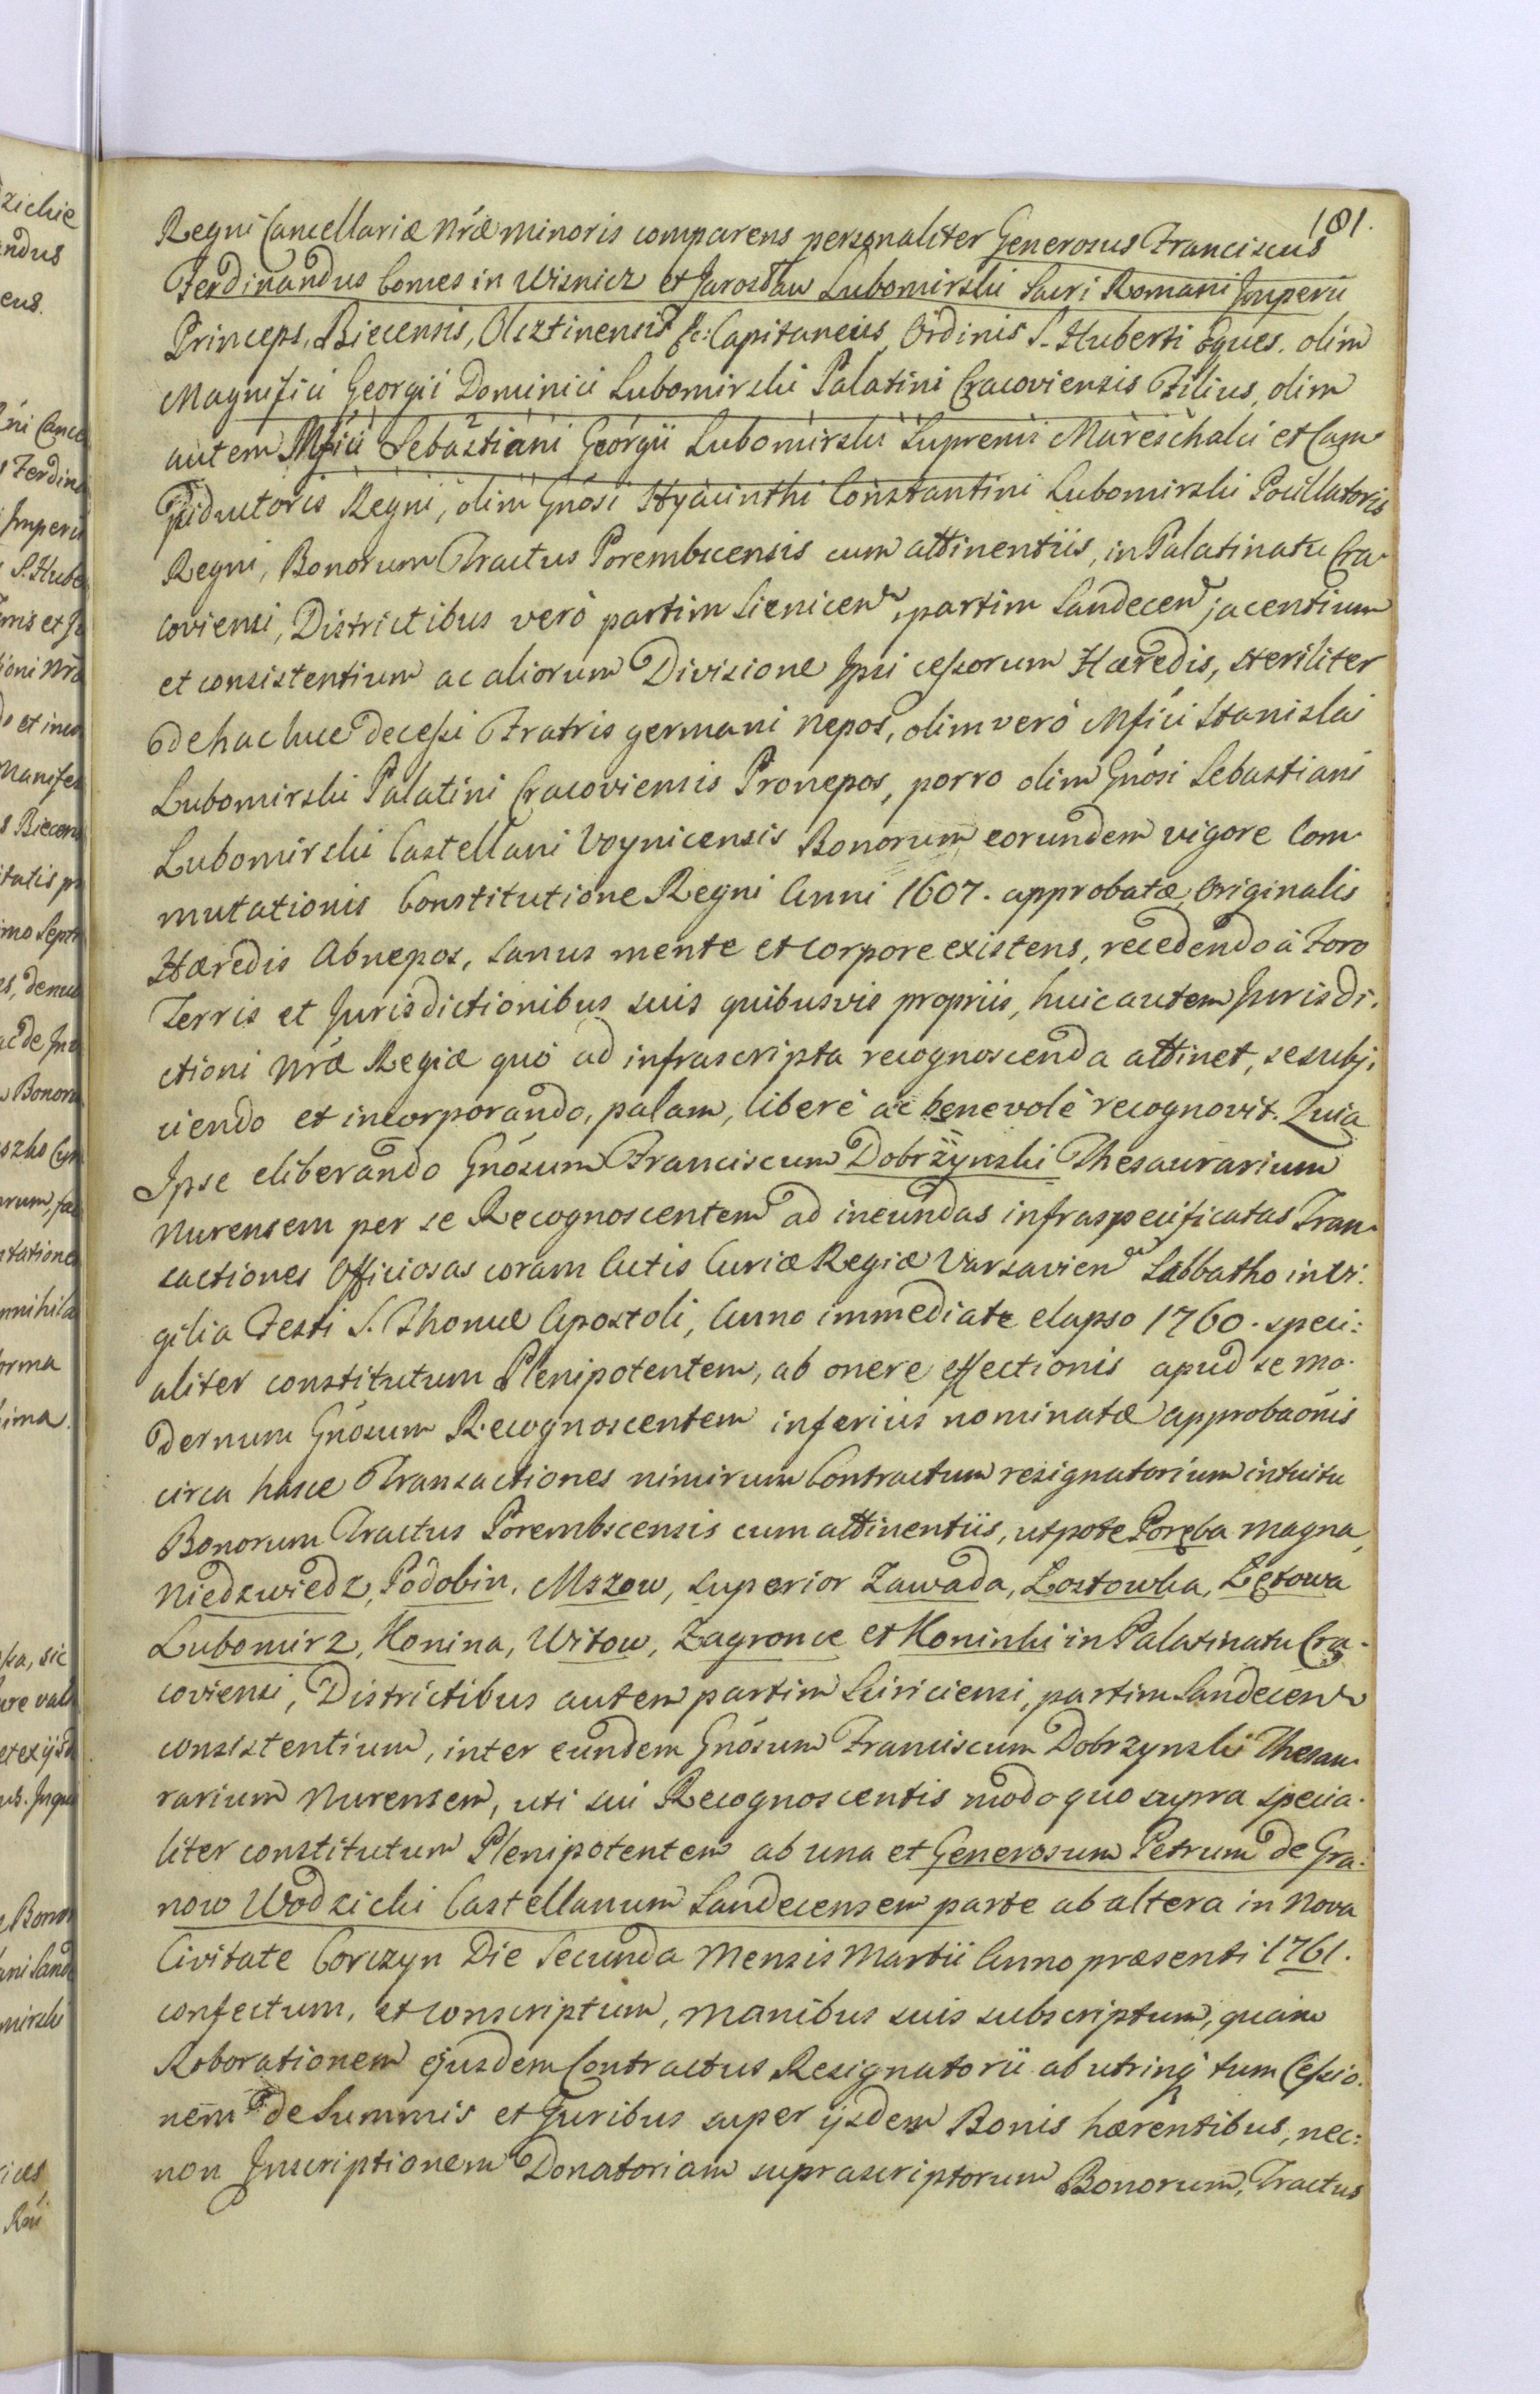 181.
Regni Cancellariæ Nr̃æ minoris comparens personaliter Generosus Franciscus
Ferdinandus Comes in Wisnicz et Jarosław Lubomirski Sacri Romani Imperii
Princeps, Biecensis, Olsztinensis &c: Capitaneus, Ordinis S. Huberti Eques. olim
Magnifici Georgii Dominici Lubomirski Palatini Cracoviensis Filius, olim
autem Mfici Sebastiani Georgii Lubomirski Supremi Mareschalci et Cam
piductoris Regni, olim Gnosi Hyacinthi Constantini Lubomirski Pocillatoris
Regni, Bonorum Tractus Porembscensis cum attinentiis, in Palatinatu Cra
coviensi, Districtibus verò partim Sicnicen, partim Sandecen jacentium
et consistentium ac aliorum Divisione Ipsi cessorum Hæredis, steriliter
de hac luce decessi Fratris germani Nepos, olim verò Mfici Stanislai
Lubomirski Palatini Cracoviensis Pronepos, porro olim Gnosi Sebastiani
Lubomirski Castellani Voynicensis Bonorum eorundem vigore Com
mutationis Constitutione Regni Anni 1607. approbatæ, Originalis
Hæredis Abnepos, sanus mente et corpore existens, recedendo à Foro
Terris et Jurisdictionibus suis quibusvis propriis, huic autem Jurisdi.
ctioni Nr̃æ Regiæ quò ad infrascripta recognoscenda attinet, se subji
ciendo et incorporando, palam, liberè ac benevolè recognovit. Quia
Ipse eliberando Gnosum Franciscum Dobrzynski Thesaurarium
Nurensem per se Recognoscentem ad ineundas infraspecificatas Tran
sactiones Officiosas coram Actis Curiæ Regiæ Varsavien Sabbatho in Vi:
gilia Festi S. Thomæ Apostoli, Anno immediate elapso 1760. speci:
aliter constitutum Plenipotentem, ab onere effectionis apud se mo.
dernum Gnosum Recognoscentem inferius nominatæ approbaonis
circa hasce Transactiones nimirum Contractum resignatorium intuitu
Bonorum Tractus Porembscensis cum attinentiis, utpote Poręba magna,
Niedzwiedz, Podobin, Mszow, superior Zawada, Łostowka, Łętowa
Lubomirz, Konina, Witow, Zagronce et Koninki in Palatinatu Cra-
coviensi, Districtibus autem partim Sciriciensi, partim Sandecen
consistentium, inter eundem Gnosum Franciscum Dobrzynski Thesau
rarium Nurensem, uti sui Recognoscentis modo quo supra specia.
liter constitutum Plenipotentem ab una et Generosum Petrum de Gra.
now Wodzicki Castellanum Sandecensem parte ab altera in Nova
Civitate Corczyn Die Secunda Mensis Martii Anno præsenti 1761.
confectum, et conscriptum, manibus suis subscriptum, quàm
Roborationem ejusdem Contractus Resignatorii ab utrinq tum Cessio.
nem de Summis et Juribus super ijsdem Bonis hærentibus, nec:
non Inscriptionem Donatoriam suprascriptorum Bonorum, Tractus